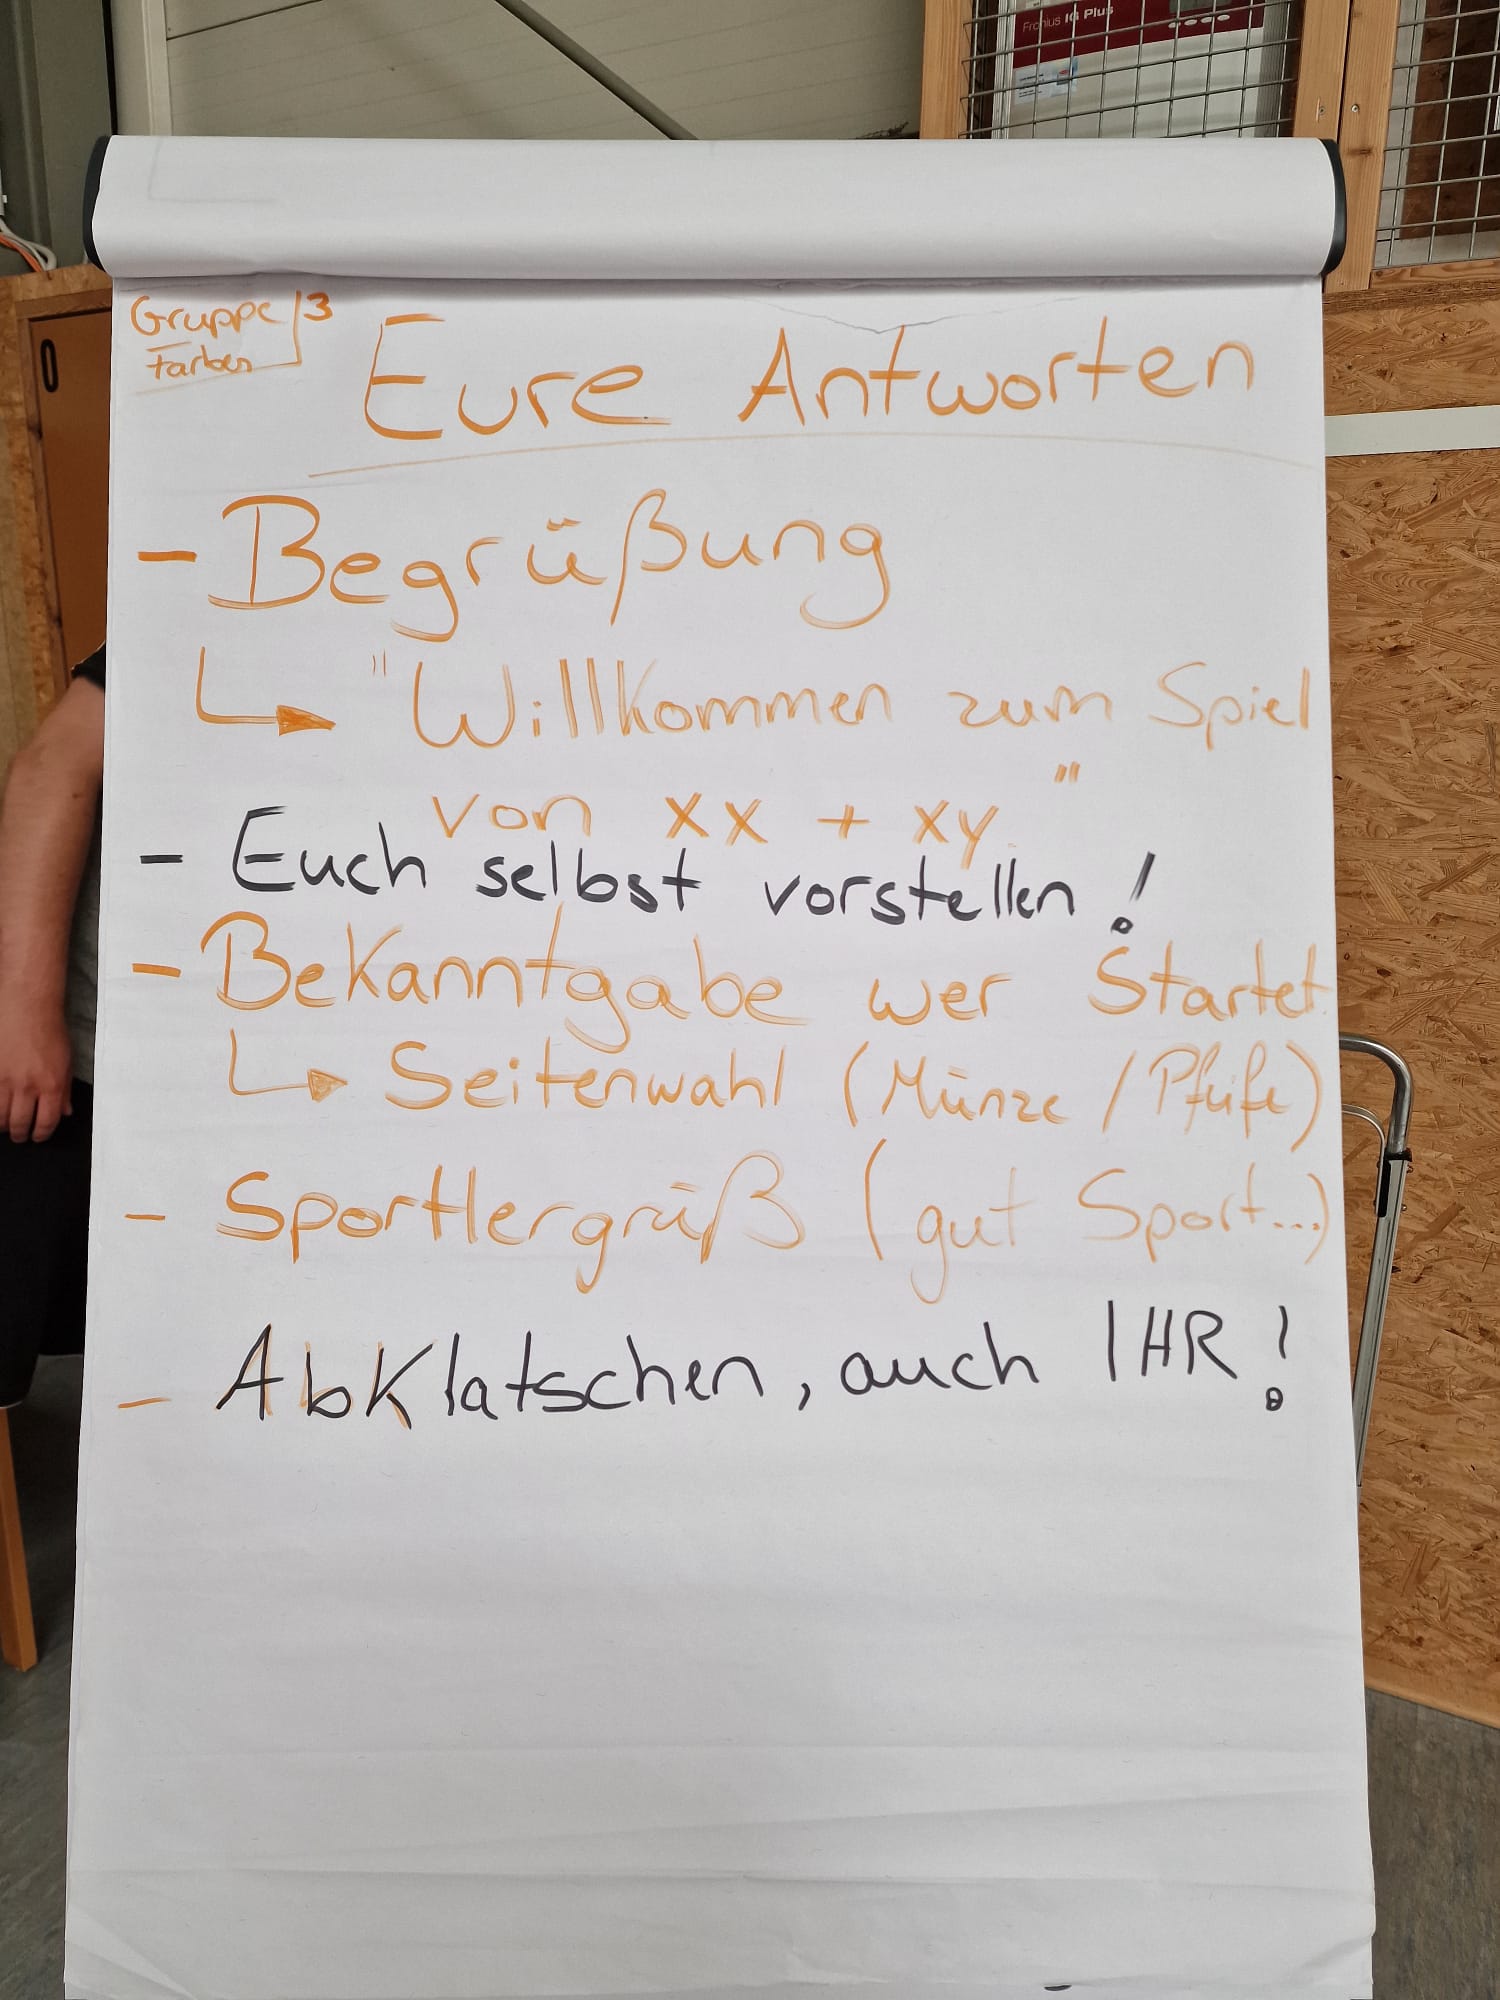 Fronius IG Plus
Gruppe 3
Farben
Eure Antworten
- Begrüßung
"Willkommen zum Spiel
von xx + xy"
- Euch selbst vorstellen!
- Bekanntgabe wer Startet
Seitenwahl (Münze / Pfeife)
- Sportlergruß (gut Sport...)
- Abklatschen, auch IHR!
0